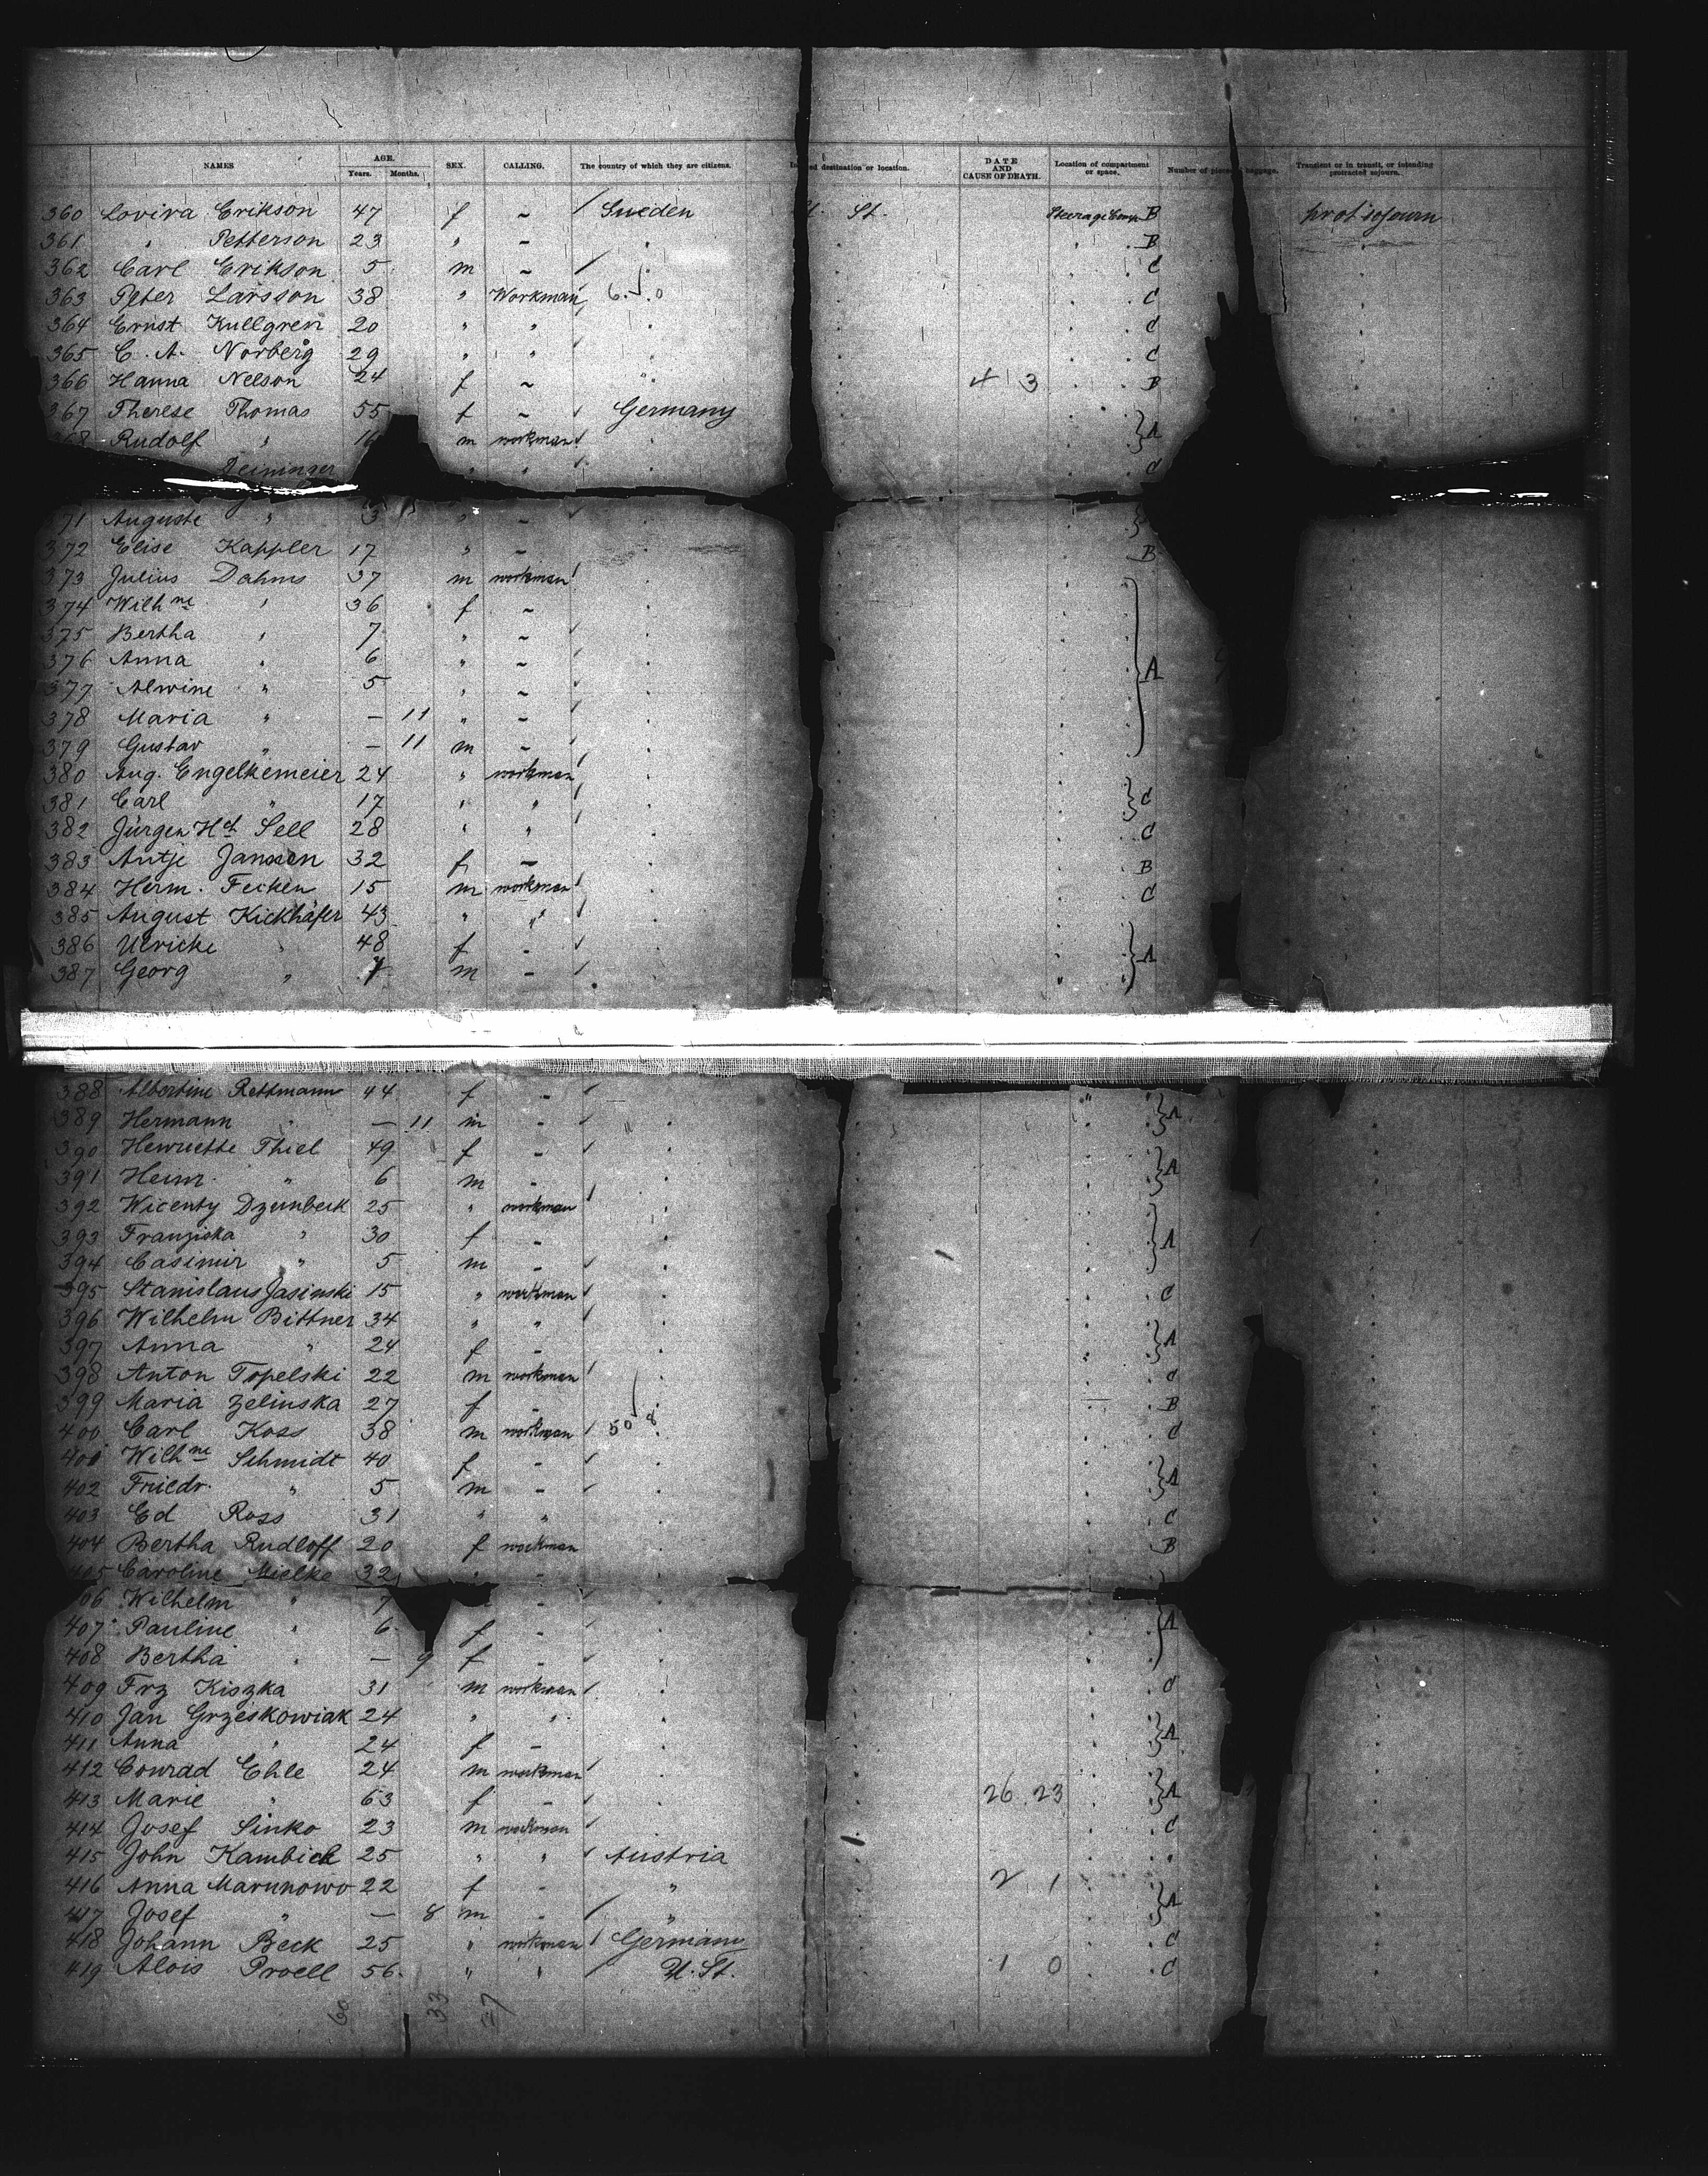 NAMES AGE. Years. Months. SEX. CALLING. The country of which they are citizens. ed destination or location. DATE AND CAUSE OF DEATH. Location of compartment or space. Number of pieces baggage. Transient or in transit, or intending protracted sojourn.
360 Lovira Erikson 47 f ~ Sweden St. Steerage Comp B prot sojourn
361 " Petterson 23 " ~ " B
362 Carl Erikson 5 m ~ " C
363 Peter Larsson 38 " Workman 6. 0 C
364 Ernst Kullgren 20 " " " C
365 C. A. Norberg 29 " " " C
366 Hanna Nelson 24 f ~ " 4 3 B
367 Therese Thomas 55 f ~ Germany
368 Rudolf " 16 m workman " A
Deininger " " " C
371 Auguste " 3 " ~ "
372 Elise Kappler 17 " ~ B
373 Julius Dahms 37 m workman "
374 Wilhne " 36 f ~ "
375 Bertha " 7 " ~ "
376 Anna " 6 " ~ "
377 Alwine " 5 " ~ " A
378 Maria " — 11 " ~ "
379 Gustav " — 11 m ~ "
380 Aug. Engelkemeier 24 " workman "
381 Carl " 17 " " " C
382 Jürgen Hch Sell 28 " " " C
383 Antje Janssen 32 f ~ " B
384 Herm. Fecken 15 m workman " C
385 August Kickhäfer 43 " " "
386 Ulricke " 48 f - " A
387 Georg " 7 m - "
388 Albertine Rettmann 44 f - "
389 Hermann " — 11 m - " A
390 Henriette Thiel 49 f - "
391 Heinr. " 6 m - " A
392 Wicenty Dzembeck 25 " workman "
393 Franziska " 30 f - " A
394 Casimir " 5 m - "
395 Stanislaus Jasinski 15 " workman " C
396 Wilhelm Bittner 34 " " "
397 Anna " 24 f - " A
398 Anton Topelski 22 m workman " C
399 Maria Zelinska 27 f - " B
400 Carl Koss 38 m workman 50 8 C
401 Wilhne Schmidt 40 f - "
402 Friedr. " 5 m - " A
403 Ed Ross 31 " " " C
404 Bertha Rudloff 20 f workman B
405 Caroline Mielke 32 " - "
406 Wilhelm " 7 - "
407 Pauline " 6 f - " A
408 Bertha " — 9 f - "
409 Frz Kiszka 31 m workman " C
410 Jan Grzeskowiak 24 " " "
411 Anna " 24 f - " A
412 Conrad Ehle 24 m workman "
413 Marie " 63 f - " 26 23 A
414 Josef Sinko 23 m workman " C
415 John Kambich 25 " " Austria "
416 Anna Marunowo 22 f - " 2 1
417 Josef " — 8 m - " A
418 Johann Beck 25 " workman Germany C
419 Alois Proell 56 " " U. St. 1 0 C
60 33 27